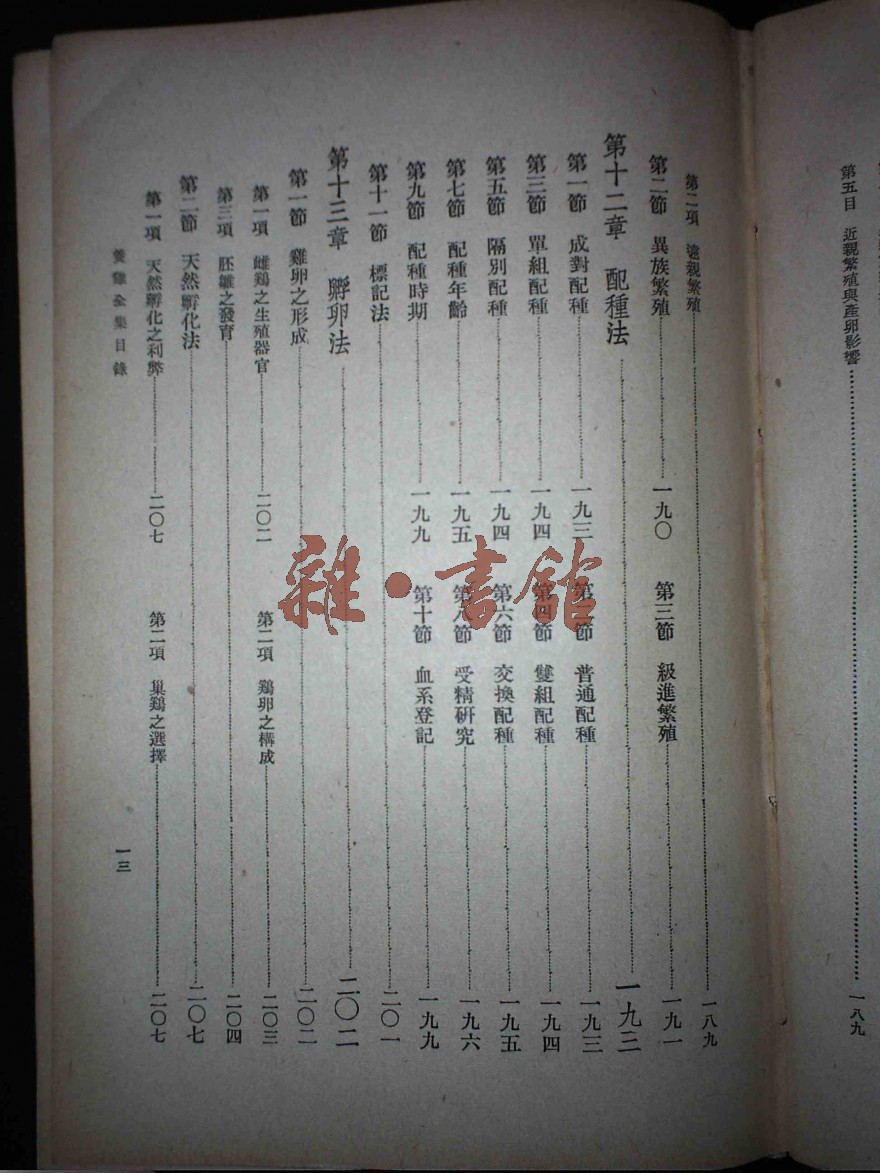 第五目 近親繁殖與產卵影響 一八九
第二項 遠親繁殖 一八九
第二節 異族繁殖 一九〇 第三節 級進繁殖 一九一
第十二章 配種法 一九三
第一節 成對配種 一九三 第二節 普通配種 一九三
第三節 單組配種 一九四 第四節 雙組配種 一九四
第五節 隔別配種 一九四 第六節 交換配種 一九五
第七節 配種年齡 一九五 第八節 受精研究 一九六
第九節 配種時期 一九九 第十節 血系登記 一九九
第十一節 標記法 二〇一
第十三章 孵卵法 二〇二
第一節 雞卵之形成 二〇二
第一項 雌鷄之生殖器官 二〇二 第二項 鷄卵之構成 二〇三
第三項 胚雛之發育 二〇四
第二節 天然孵化法 二〇七
第一項 天然孵化之利弊 二〇七 第二項 巢鷄之選擇 二〇七
養雞全集目錄 一三
雜·書館